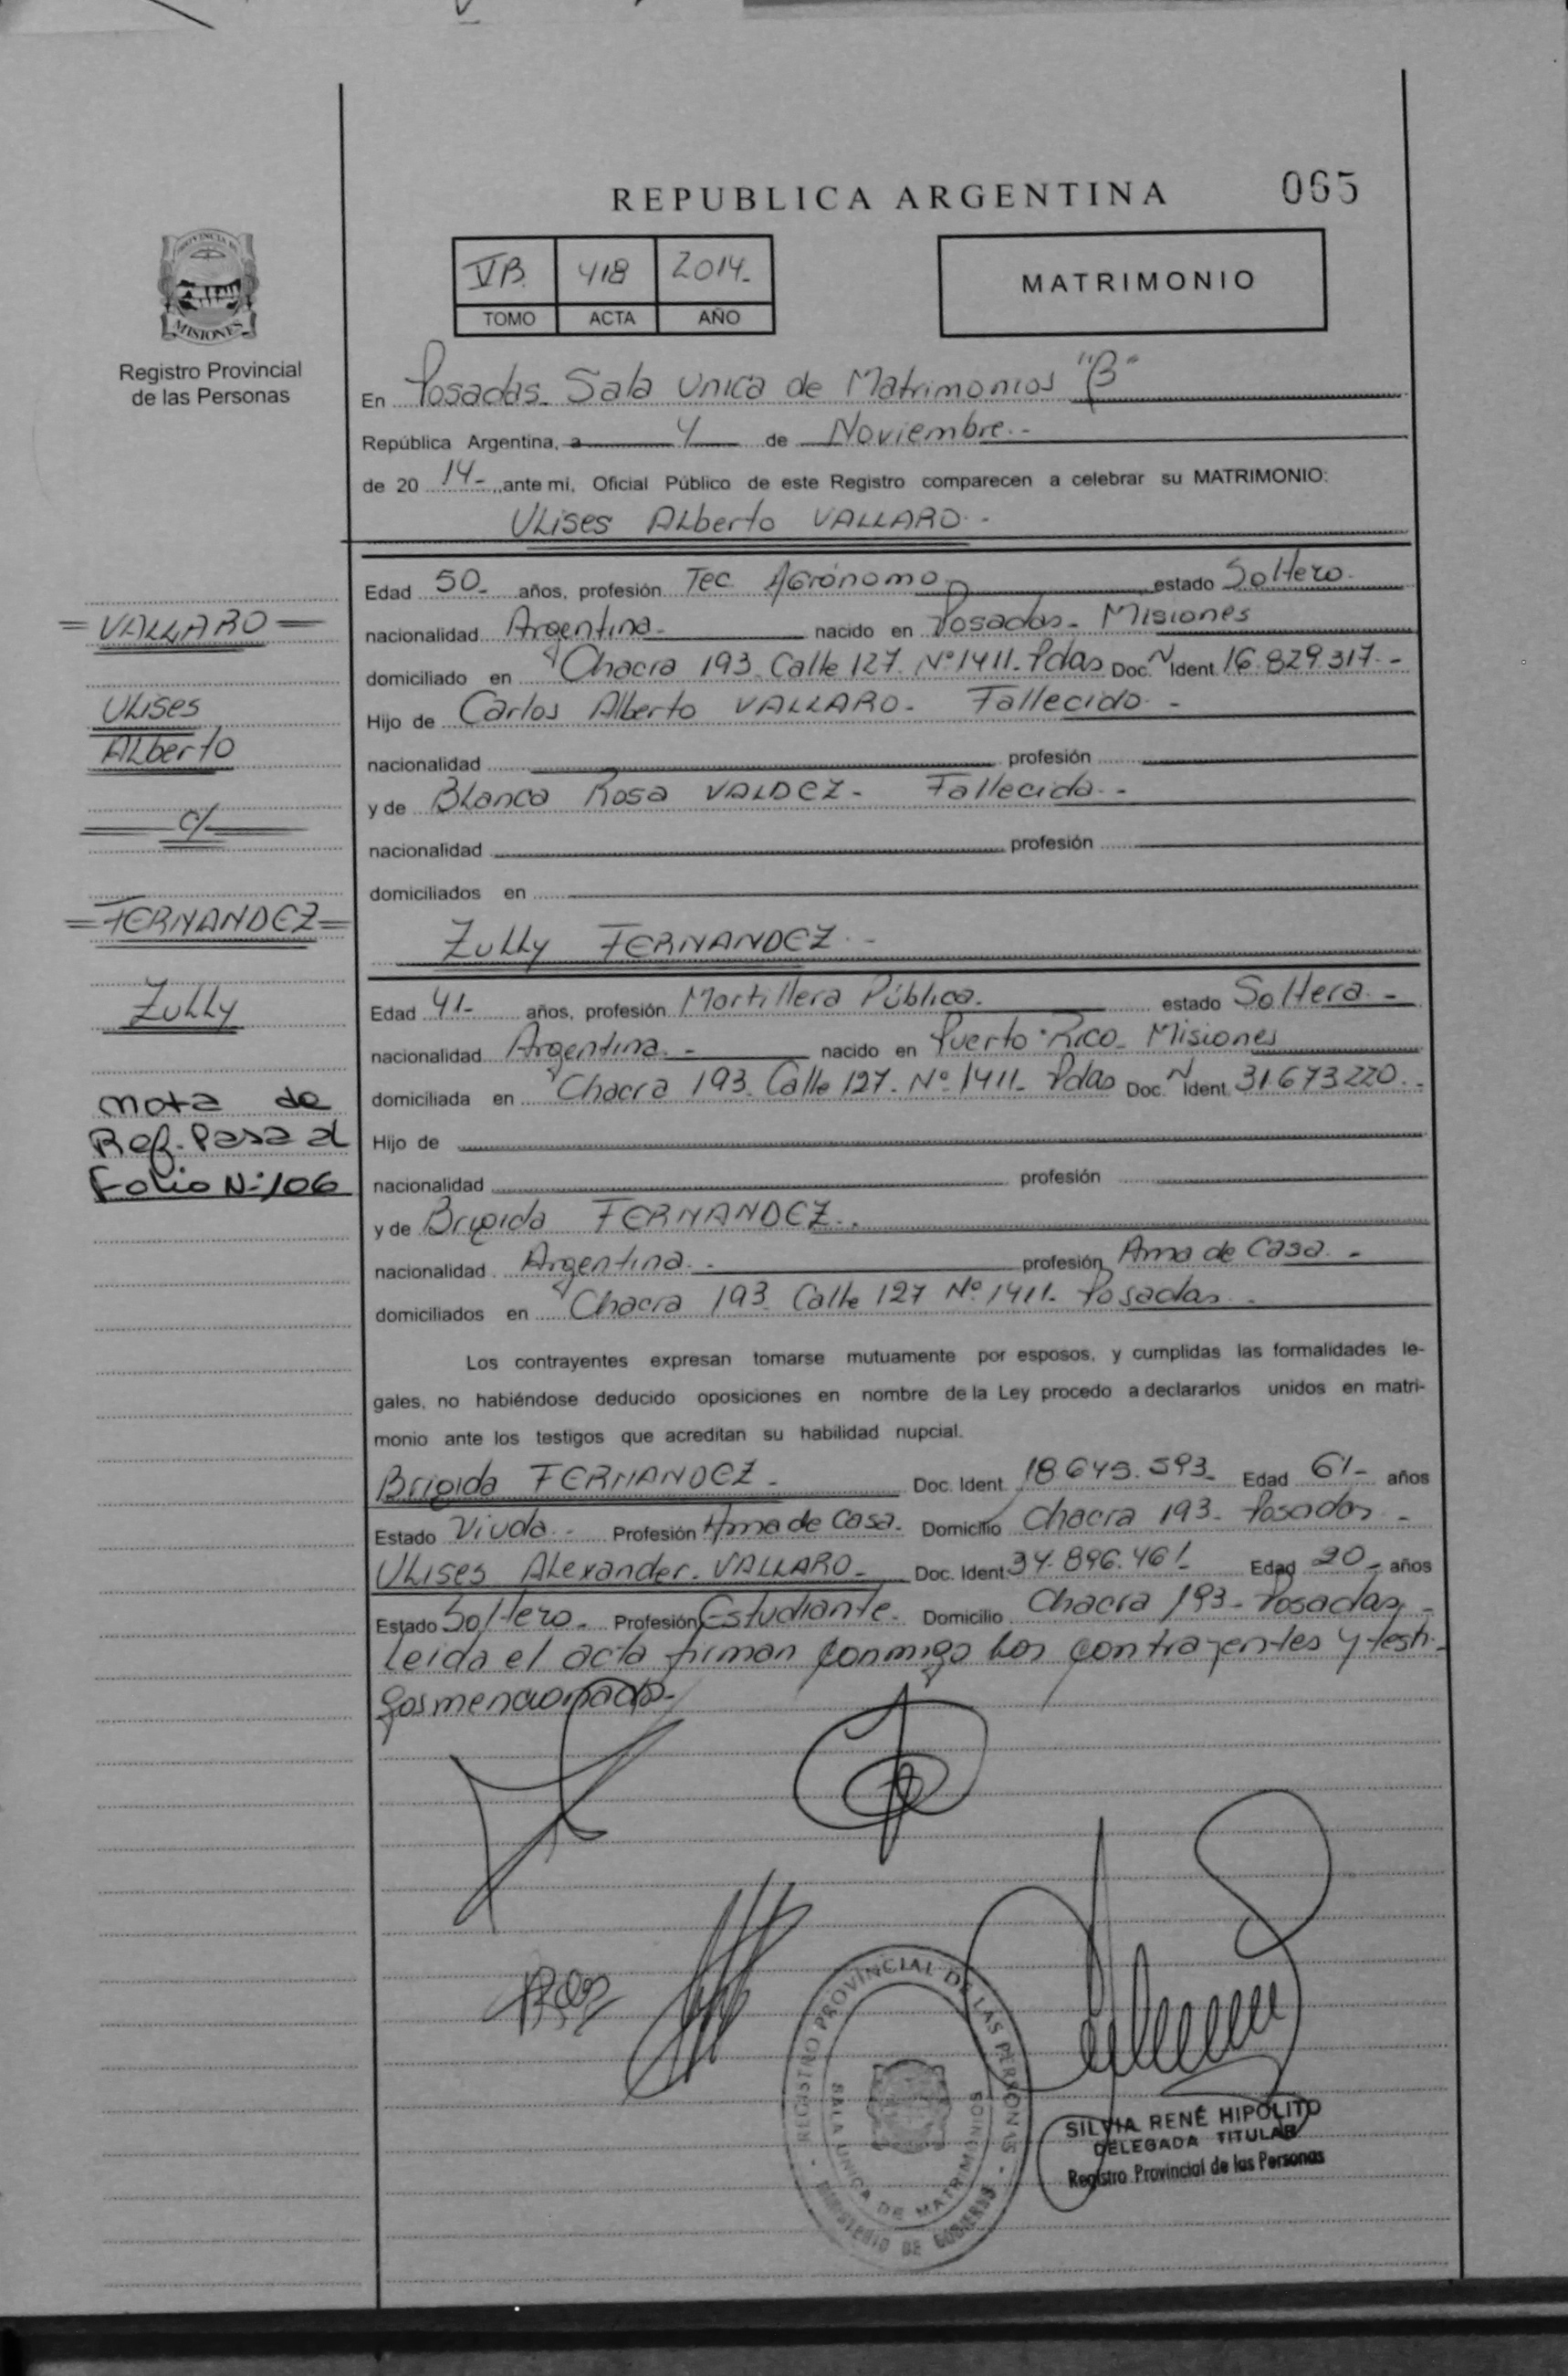 REPUBLICA ARGENTINA
065
PROVINCIA DE
MISIONES
Registro Provincial
de las Personas
VB. 418 2014-
TOMO ACTA AÑO
MATRIMONIO
En Posadas- Sala Unica de Matrimonios "B"
República Argentina, a 4 de Noviembre.-
de 20 14- ,,ante mi, Oficial Público de este Registro comparecen a celebrar su MATRIMONIO:
Ulises Alberto VALLARO.-
Edad 50- años, profesión Tec. Agrónomo estado Soltero.
nacionalidad Argentina- nacido en Posadas- Misiones
domiciliado en Chacra 193- Calle 127. Nº 1411- Pdas Doc. N Ident. 16.829.317.-
Hijo de Carlos Alberto VALLARO- Fallecido.-
nacionalidad profesión
y de Blanca Rosa VALDEZ- Fallecida.-
nacionalidad profesión
domiciliados en
Zully FERNANDEZ.-
Edad 41- años, profesión Martillera Pública. estado Soltera.-
nacionalidad Argentina.- nacido en Puerto Rico- Misiones
domiciliada en Chacra 193. Calle 127. Nº 1411- Pdas Doc. N Ident. 31.673.220.-
Hijo de
nacionalidad profesión
y de Brigida FERNANDEZ..
nacionalidad Argentina.- profesión Ama de Casa.-
domiciliados en Chacra 193. Calle 127 Nº 1411- Posadas.-
Los contrayentes expresan tomarse mutuamente por esposos, y cumplidas las formalidades le-
gales, no habiéndose deducido oposiciones en nombre de la Ley procedo a declararlos unidos en matri-
monio ante los testigos que acreditan su habilidad nupcial.
Brigida FERNANDEZ- Doc. Ident. 18.645.593- Edad 61- años
Estado Viuda.- Profesión Ama de Casa. Domicilio Chacra 193- Posadas-
Ulises Alexander VALLARO- Doc. Ident. 34.896.461- Edad 20- años
Estado Soltero- Profesión Estudiante. Domicilio Chacra 193- Posadas-
leida el acta firman conmigo los contrayentes y testi-
gos mencionados-
=VALLARO=
Ulises
Alberto
c/
=FERNANDEZ=
Zully
Nota de
Ref. Pasa al
Folio Nº 106
REGISTRO PROVINCIAL DE LAS PERSONAS
SALA UNICA DE MATRIMONIOS
MINISTERIO DE GOBIERNO
SILVIA RENÉ HIPÓLITO
DELEGADA TITULAR
Registro Provincial de las Personas